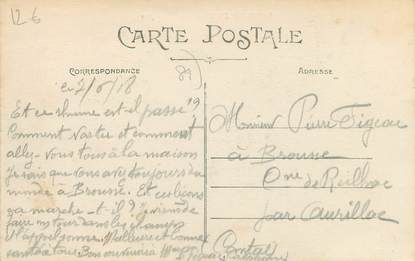 12-6
CARTE POSTALE
CORRESPONDANCE
ADRESSE
Et ce rhume est-il passé ?
Comment vas tu et comment
allez-vous tous à la maison
Je vois que vous avez toujours du
monde à Brousse. Et
ça marche-t-il ? Je viens de
faire mon tour dans les champs
Meilleure et bonne
santé à tous Bon souvenir à
Monsieur Pierre Figeac
à Brousse
Cne de Reilhac
par Aurillac
(Cantal)